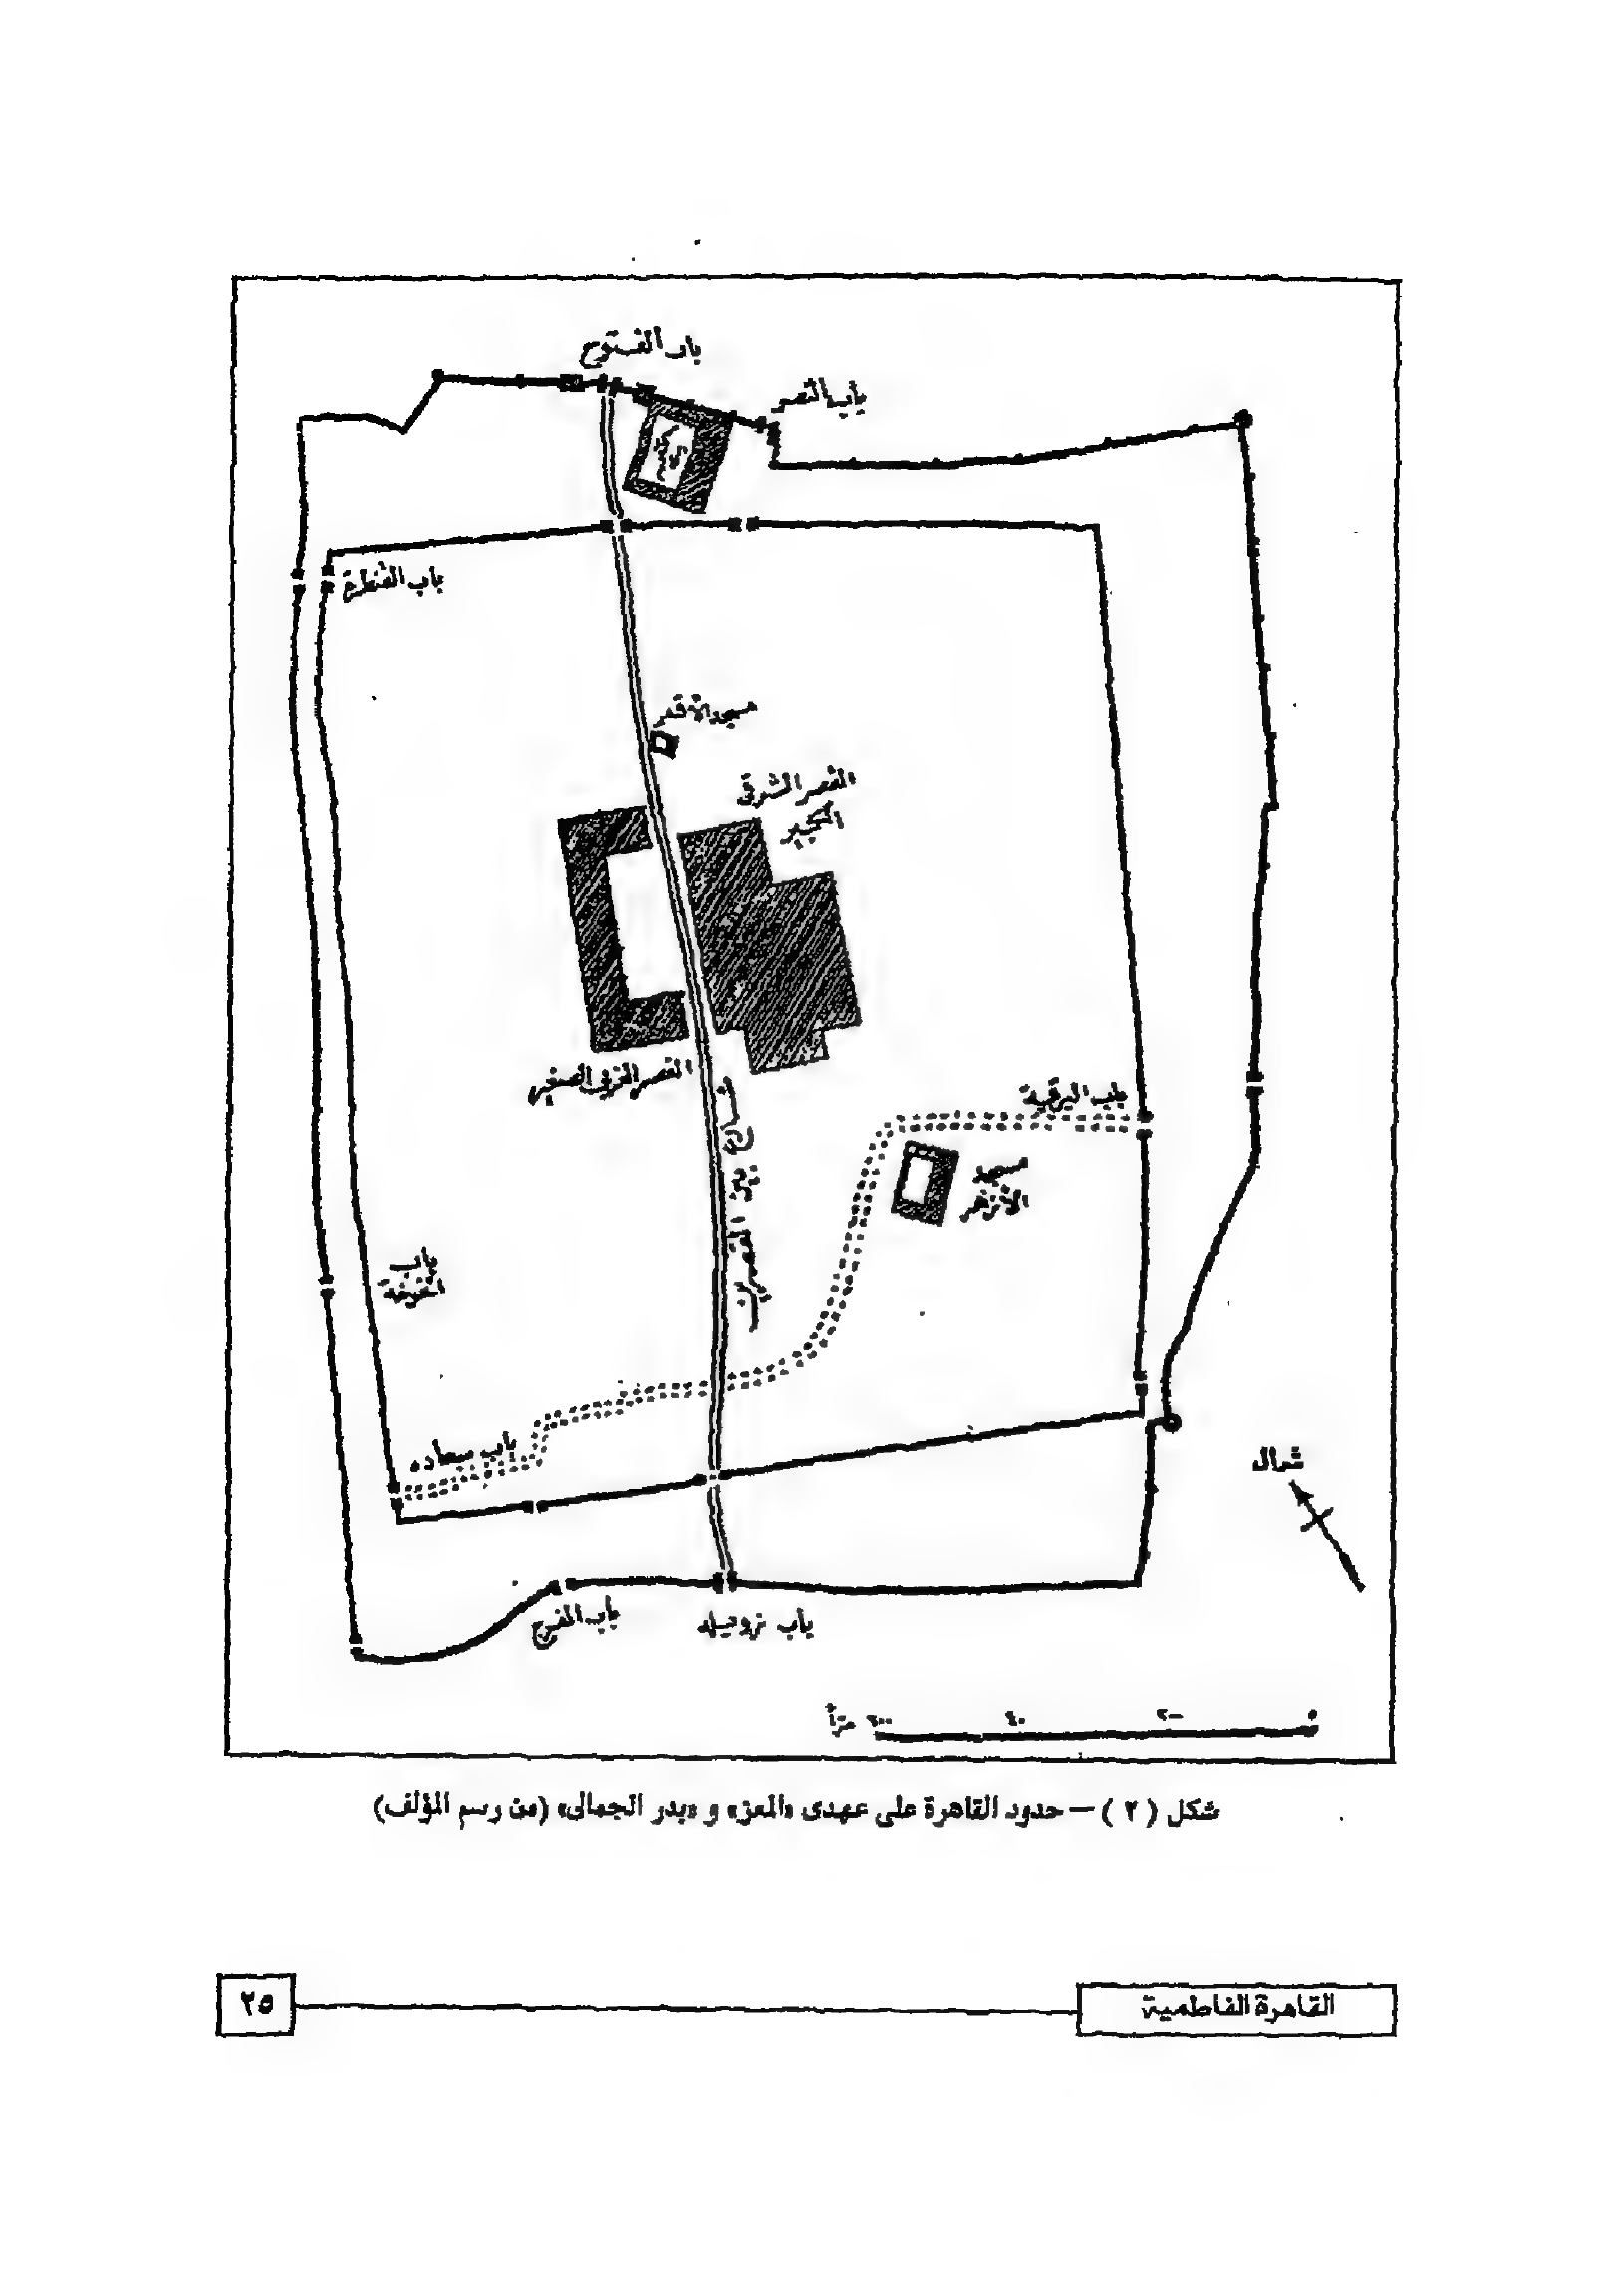 باب الفتوح
باب النصر
باب القنطرة
مسجد الأقمر
القصر الشرقى
الكبير
القصر الغربى الصغير
باب البرقية
مسجد
الأزهر
بين القصرين
باب
الخوخة
باب سعاده
شمال
باب الفرج
باب زويله
٠
شكل ( ٢ ) — حدود القاهرة على عهدى «المعز» و «بدر الجمالى» (من رسم المؤلف)
القاهرة الفاطمية
٢٥